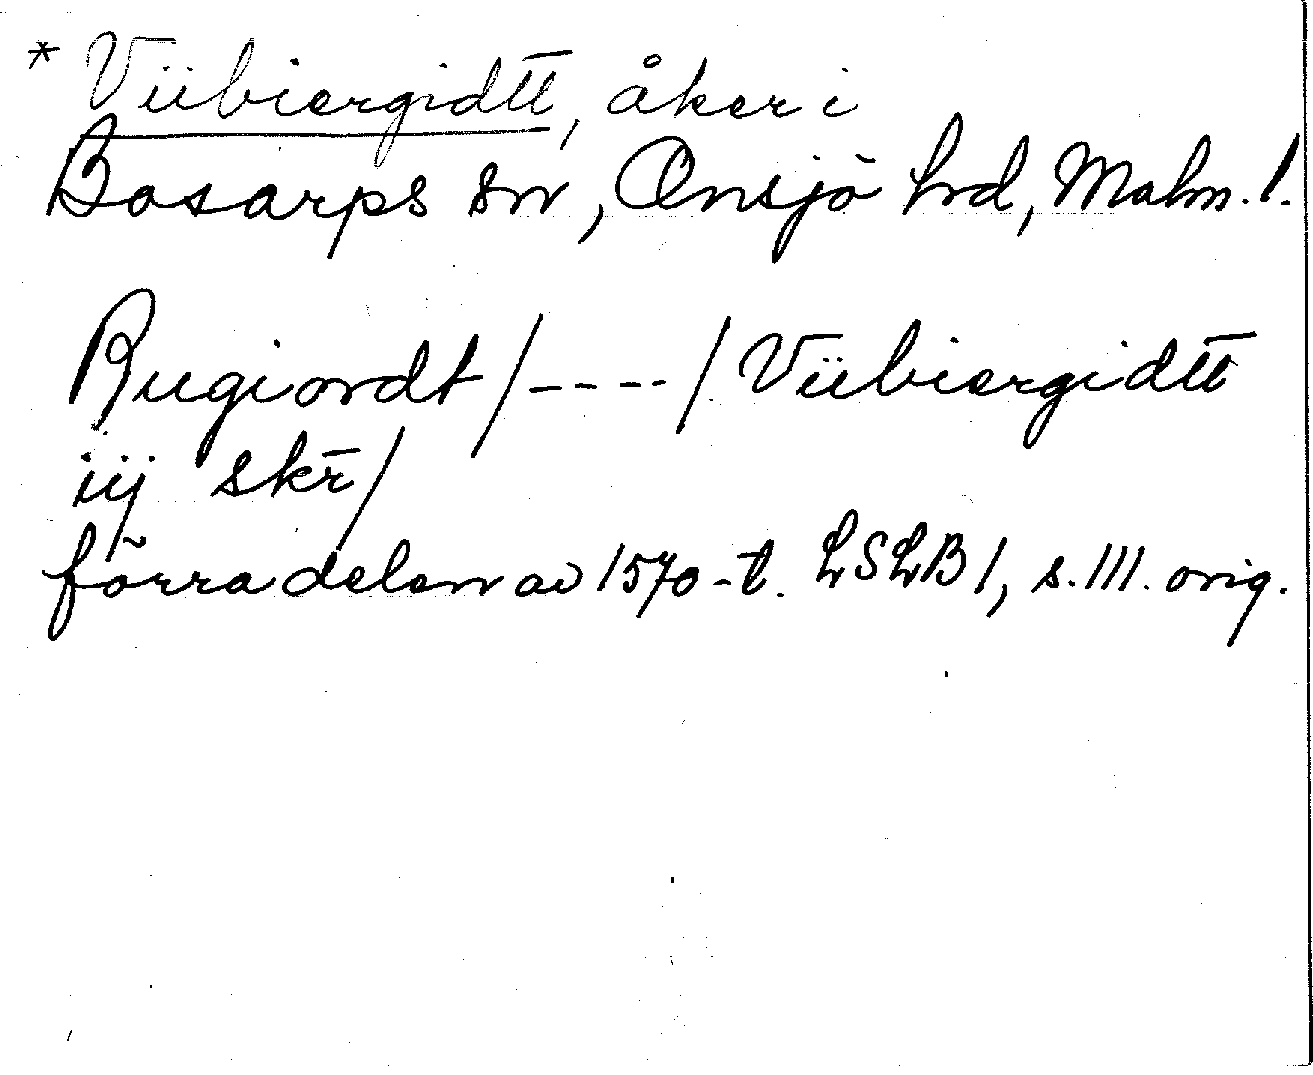 * Viibiergidtt, åker i
Bosarps sn, Onsjö hrd, Malm. l.
Rugiordt/----/Viibiergidtt
iij skr/
förra delen av 1570-t. LSLB 1, s. 111. orig.